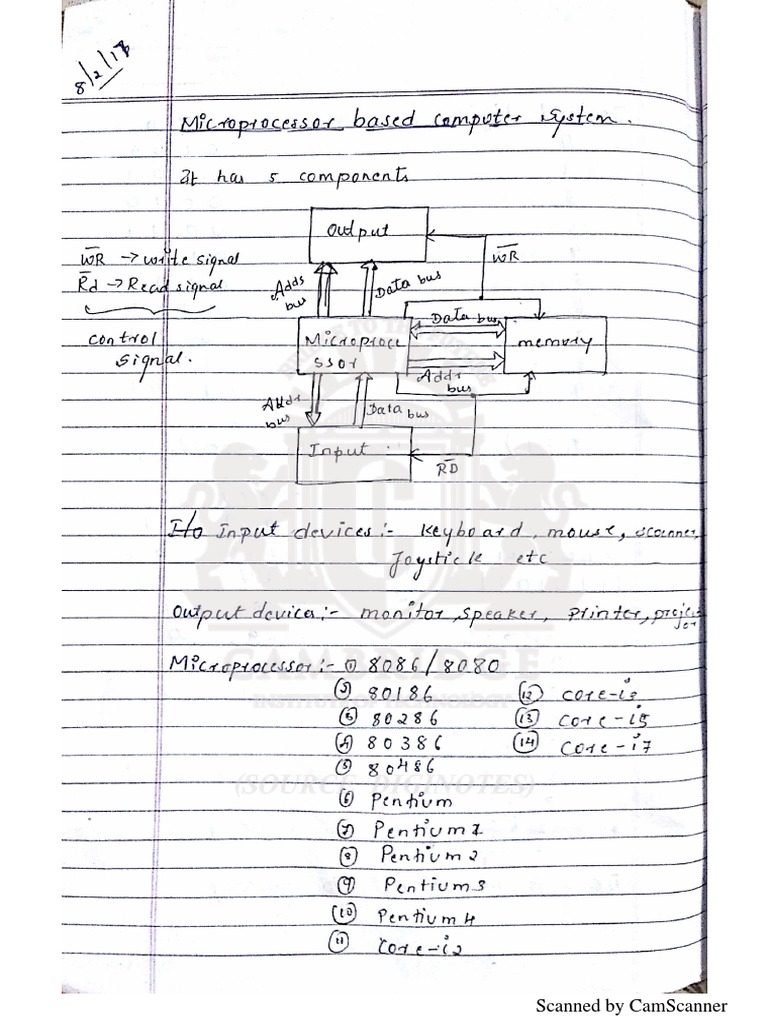 8/2/18
Microprocessor based computer system.
It has 5 components
Output
W̅R̅ → write signal
W̅R̅
R̅d̅ → Read signal
Adds bus
Data bus
control signal.
Microproce
ssor
Data bus
Addr bus
memory
Addr bus
Data bus
Input
R̅D̅
I/o Input devices :- Keyboard, mouse, scanner,
Joystick etc
Output devices :- monitor, speaker, Printer, projec
tor
Microprocessor :- ① 8086/8080
② 80186 ⑫ core-i3
③ 80286 ⑬ core-i5
④ 80386 ⑭ core-i7
⑤ 80486
⑥ Pentium
⑦ Pentium 1
⑧ Pentium 2
⑨ Pentium 3
⑩ Pentium 4
⑪ core-i2
CAMBRIDGE
INSTITUTE OF TECHNOLOGY
(SOURCE DIGINOTES)
Scanned by CamScanner